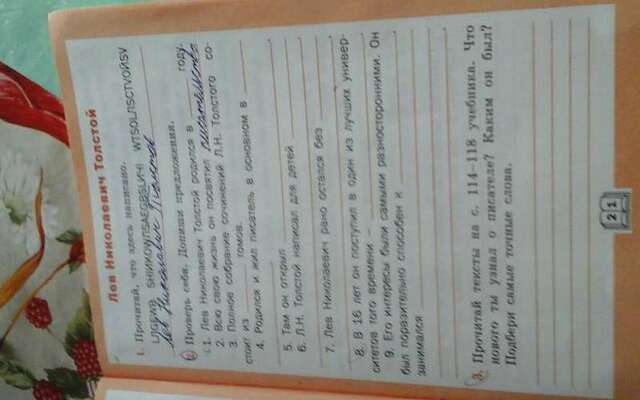 Лев Николаевич Толстой
1. Прочитай, что здесь написано.
Лев Николаевич Толстой
2. Проверь себя. Допиши предложения.
1. Лев Николаевич Толстой родился в ______ году.
2. Всю свою жизнь он посвятил писательство
3. Полное собрание сочинений Л.Н. Толстого со-
стоит из ______ томов.
4. Родился и жил писатель в основном в
5. Там он открыл
6. Л.Н. Толстой написал для детей
7. Лев Николаевич рано остался без
8. В 16 лет он поступил в один из лучших универ-
ситетов того времени –
9. Его интересы были самыми разносторонними. Он
был поразительно способен к
занимался
3. Прочитай тексты на с. 114–118 учебника. Что
нового ты узнал о писателе? Каким он был?
Подбери самые точные слова.
21